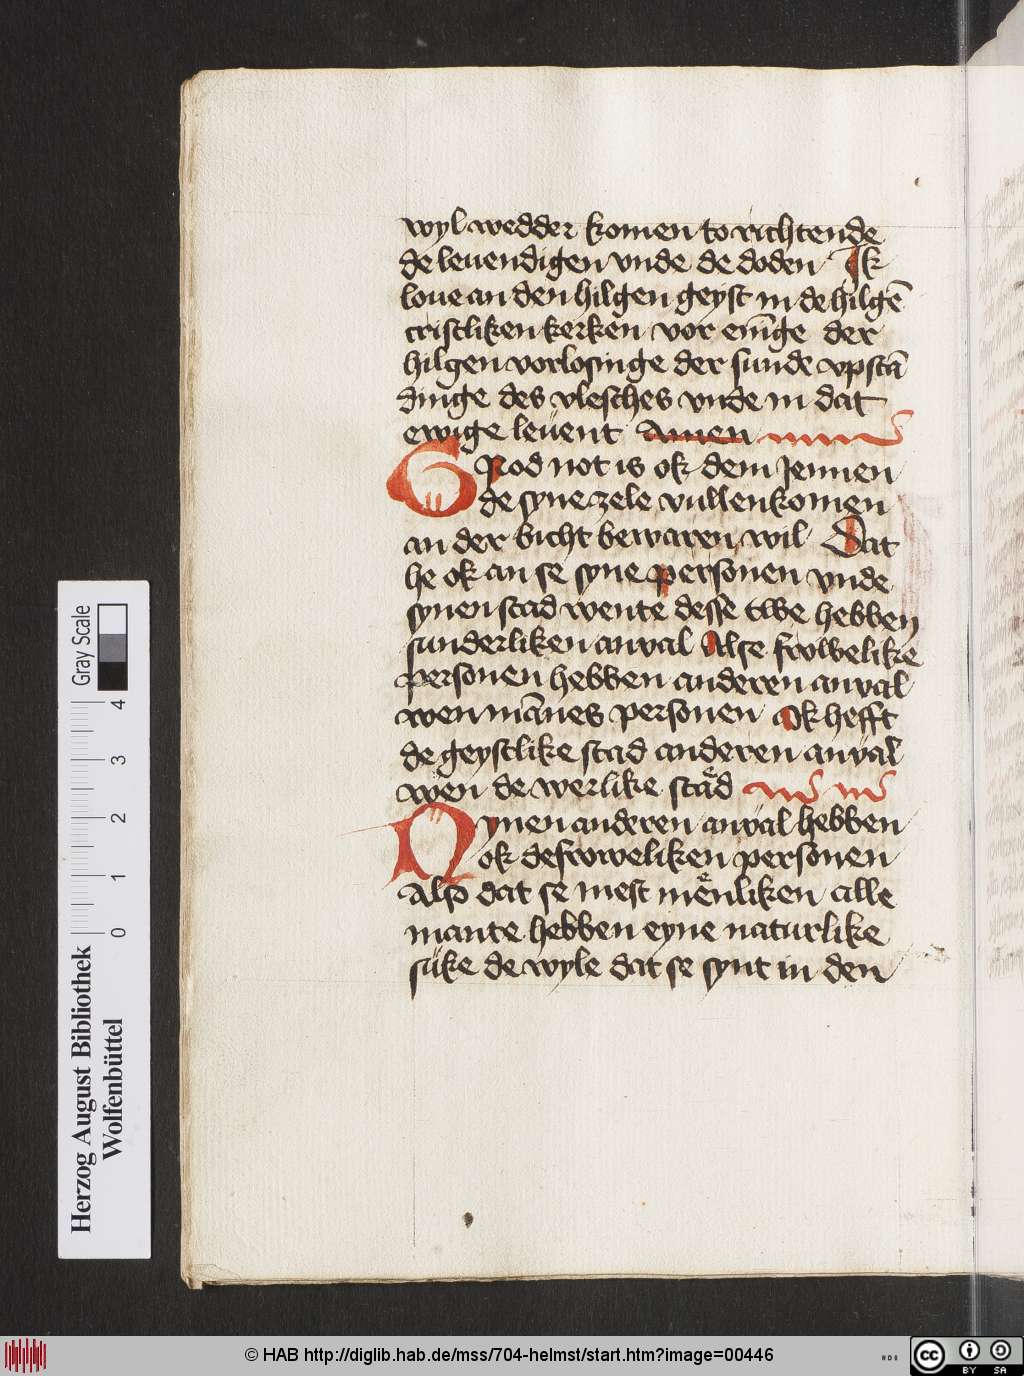 wyl wedder komen to richtende
de leuendigen vnde de doden Ik
loue an den hilgen geyst in de hilgē
cristliken kerken vor enīge der
hilgen vorlosinge der sunde vpstā
dinge des vlesches vnde in dat
ewige leuent Amen
Grod not is ok dem Jennen
de syne zele vullenkomen
an der bicht bewaren wil Dat
he ok an se syne personen vnde
synen stad wente desse twe hebben
sunderliken anval Alse frowelike
personen hebben anderen anval
wen mānes personen Ok hefft
de geystlike stad anderen anval
wen de werlike stad
Nynen anderen anval hebben
ok de froweliken personen
Also dat se mest menliken alle
mante hebben eyne naturlike
suke de wyle dat se synt in den
Herzog August Bibliothek
Wolfenbüttel
Gray Scale
0 1 2 3 4
© HAB http://diglib.hab.de/mss/704-helmst/start.htm?image=00446
cc BY SA